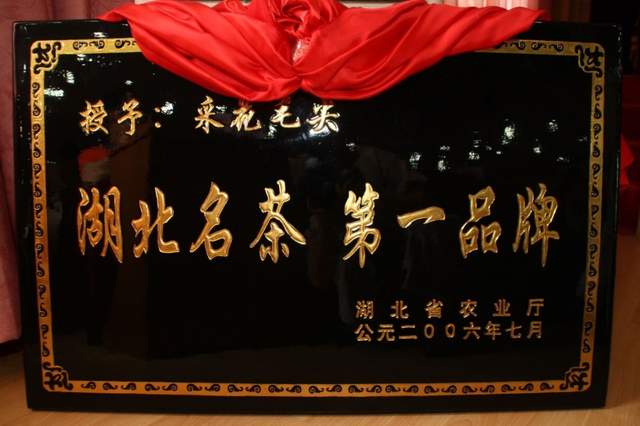 授予：采花毛尖
湖北名茶 第一品牌
湖北省农业厅
公元二〇〇六年七月